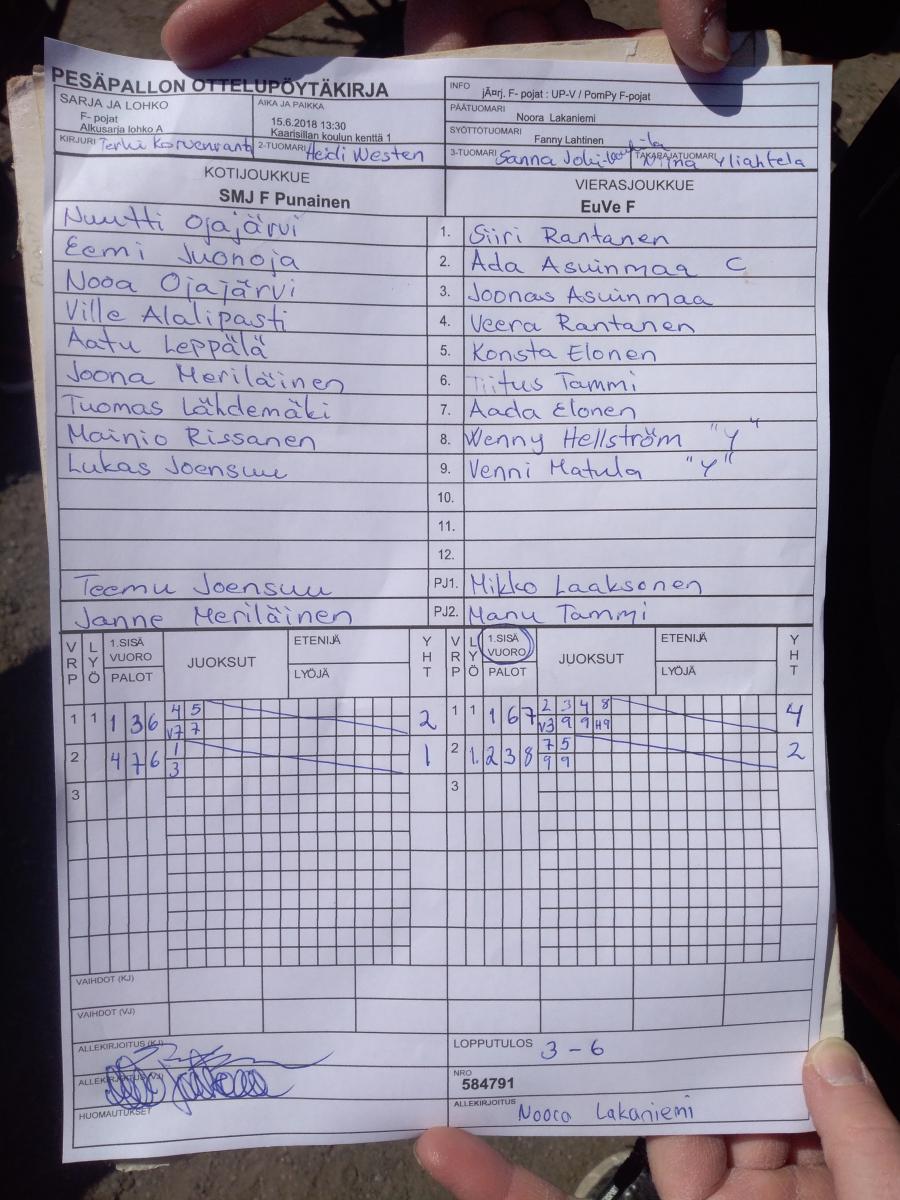 PESÄPALLON OTTELUPÖYTÄKIRJA
INFO jÃ¤rj. F- pojat : UP-V / PomPy F-pojat
SARJA JA LOHKO
F- pojat
Alkusarja lohko A
AIKA JA PAIKKA
15.6.2018 13:30
Kaarisillan koulun kenttä 1
PÄÄTUOMARI
Noora Lakaniemi
SYÖTTÖTUOMARI
Fanny Lahtinen
KIRJURI
2-TUOMARI Heidi Westen
3-TUOMARI Sanna
TAKARAJATUOMARI Niina Yliahtela
KOTIJOUKKUE
SMJ F Punainen
VIERASJOUKKUE
EuVe F
Nuutti Ojajärvi 1. Siiri Rantanen
Eemi Juonoja 2. Ada Asuinmaa C
Nooa Ojajärvi 3. Joonas Asuinmaa
Ville Alalipasti 4. Veera Rantanen
Aatu Leppälä 5. Konsta Elonen
Joona Meriläinen 6. Tiitus Tammi
Tuomas Lähdemäki 7. Aada Elonen
Mainio Rissanen 8. Wenny Hellström "Y"
Lukas Joensuu 9. Venni Matula "Y"
10.
11.
12.
Teemu Joensuu PJ1. Mikko Laaksonen
Janne Meriläinen PJ2. Manu Tammi
VRP LYÖ 1.SISÄ VUORO PALOT JUOKSUT ETENIJÄ LYÖJÄ YHT VRP LYÖ 1.SISÄ VUORO PALOT JUOKSUT ETENIJÄ LYÖJÄ YHT
1 1 1 3 6 4 5 2 1 1 1 6 7 2 3 4 8 4
V7 7 V3 9 9 H9
2 4 7 6 1 1 2 1. 2 3 8 7 5 2
3 9 9
3 3
VAIHDOT (KJ)
VAIHDOT (VJ)
ALLEKIRJOITUS (KJ)
LOPPUTULOS 3 - 6
ALLEKIRJOITUS (VJ)
NRO
584791
HUOMAUTUKSET
ALLEKIRJOITUS Noora Lakaniemi